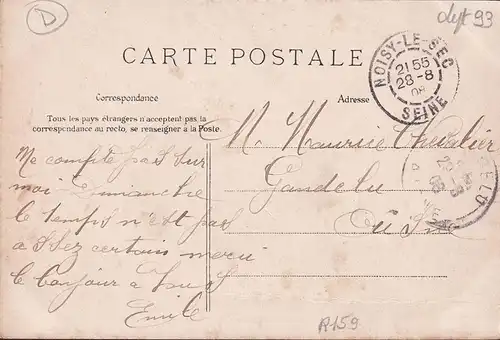 D
dept 93
CARTE POSTALE
Correspondance
Adresse
Tous les pays étrangers n'acceptent pas la
correspondance au recto, se renseigner à la Poste.
NOISY-LE-SEC
21 55
28-8
08
SEINE
M. Maurice Chevalier
Gandelu
Aisne
Ne compte pas sur
moi Dimanche
le temps n'est pas
assez certain merci
le bonjour à tous
Emile
GANDELU
R159